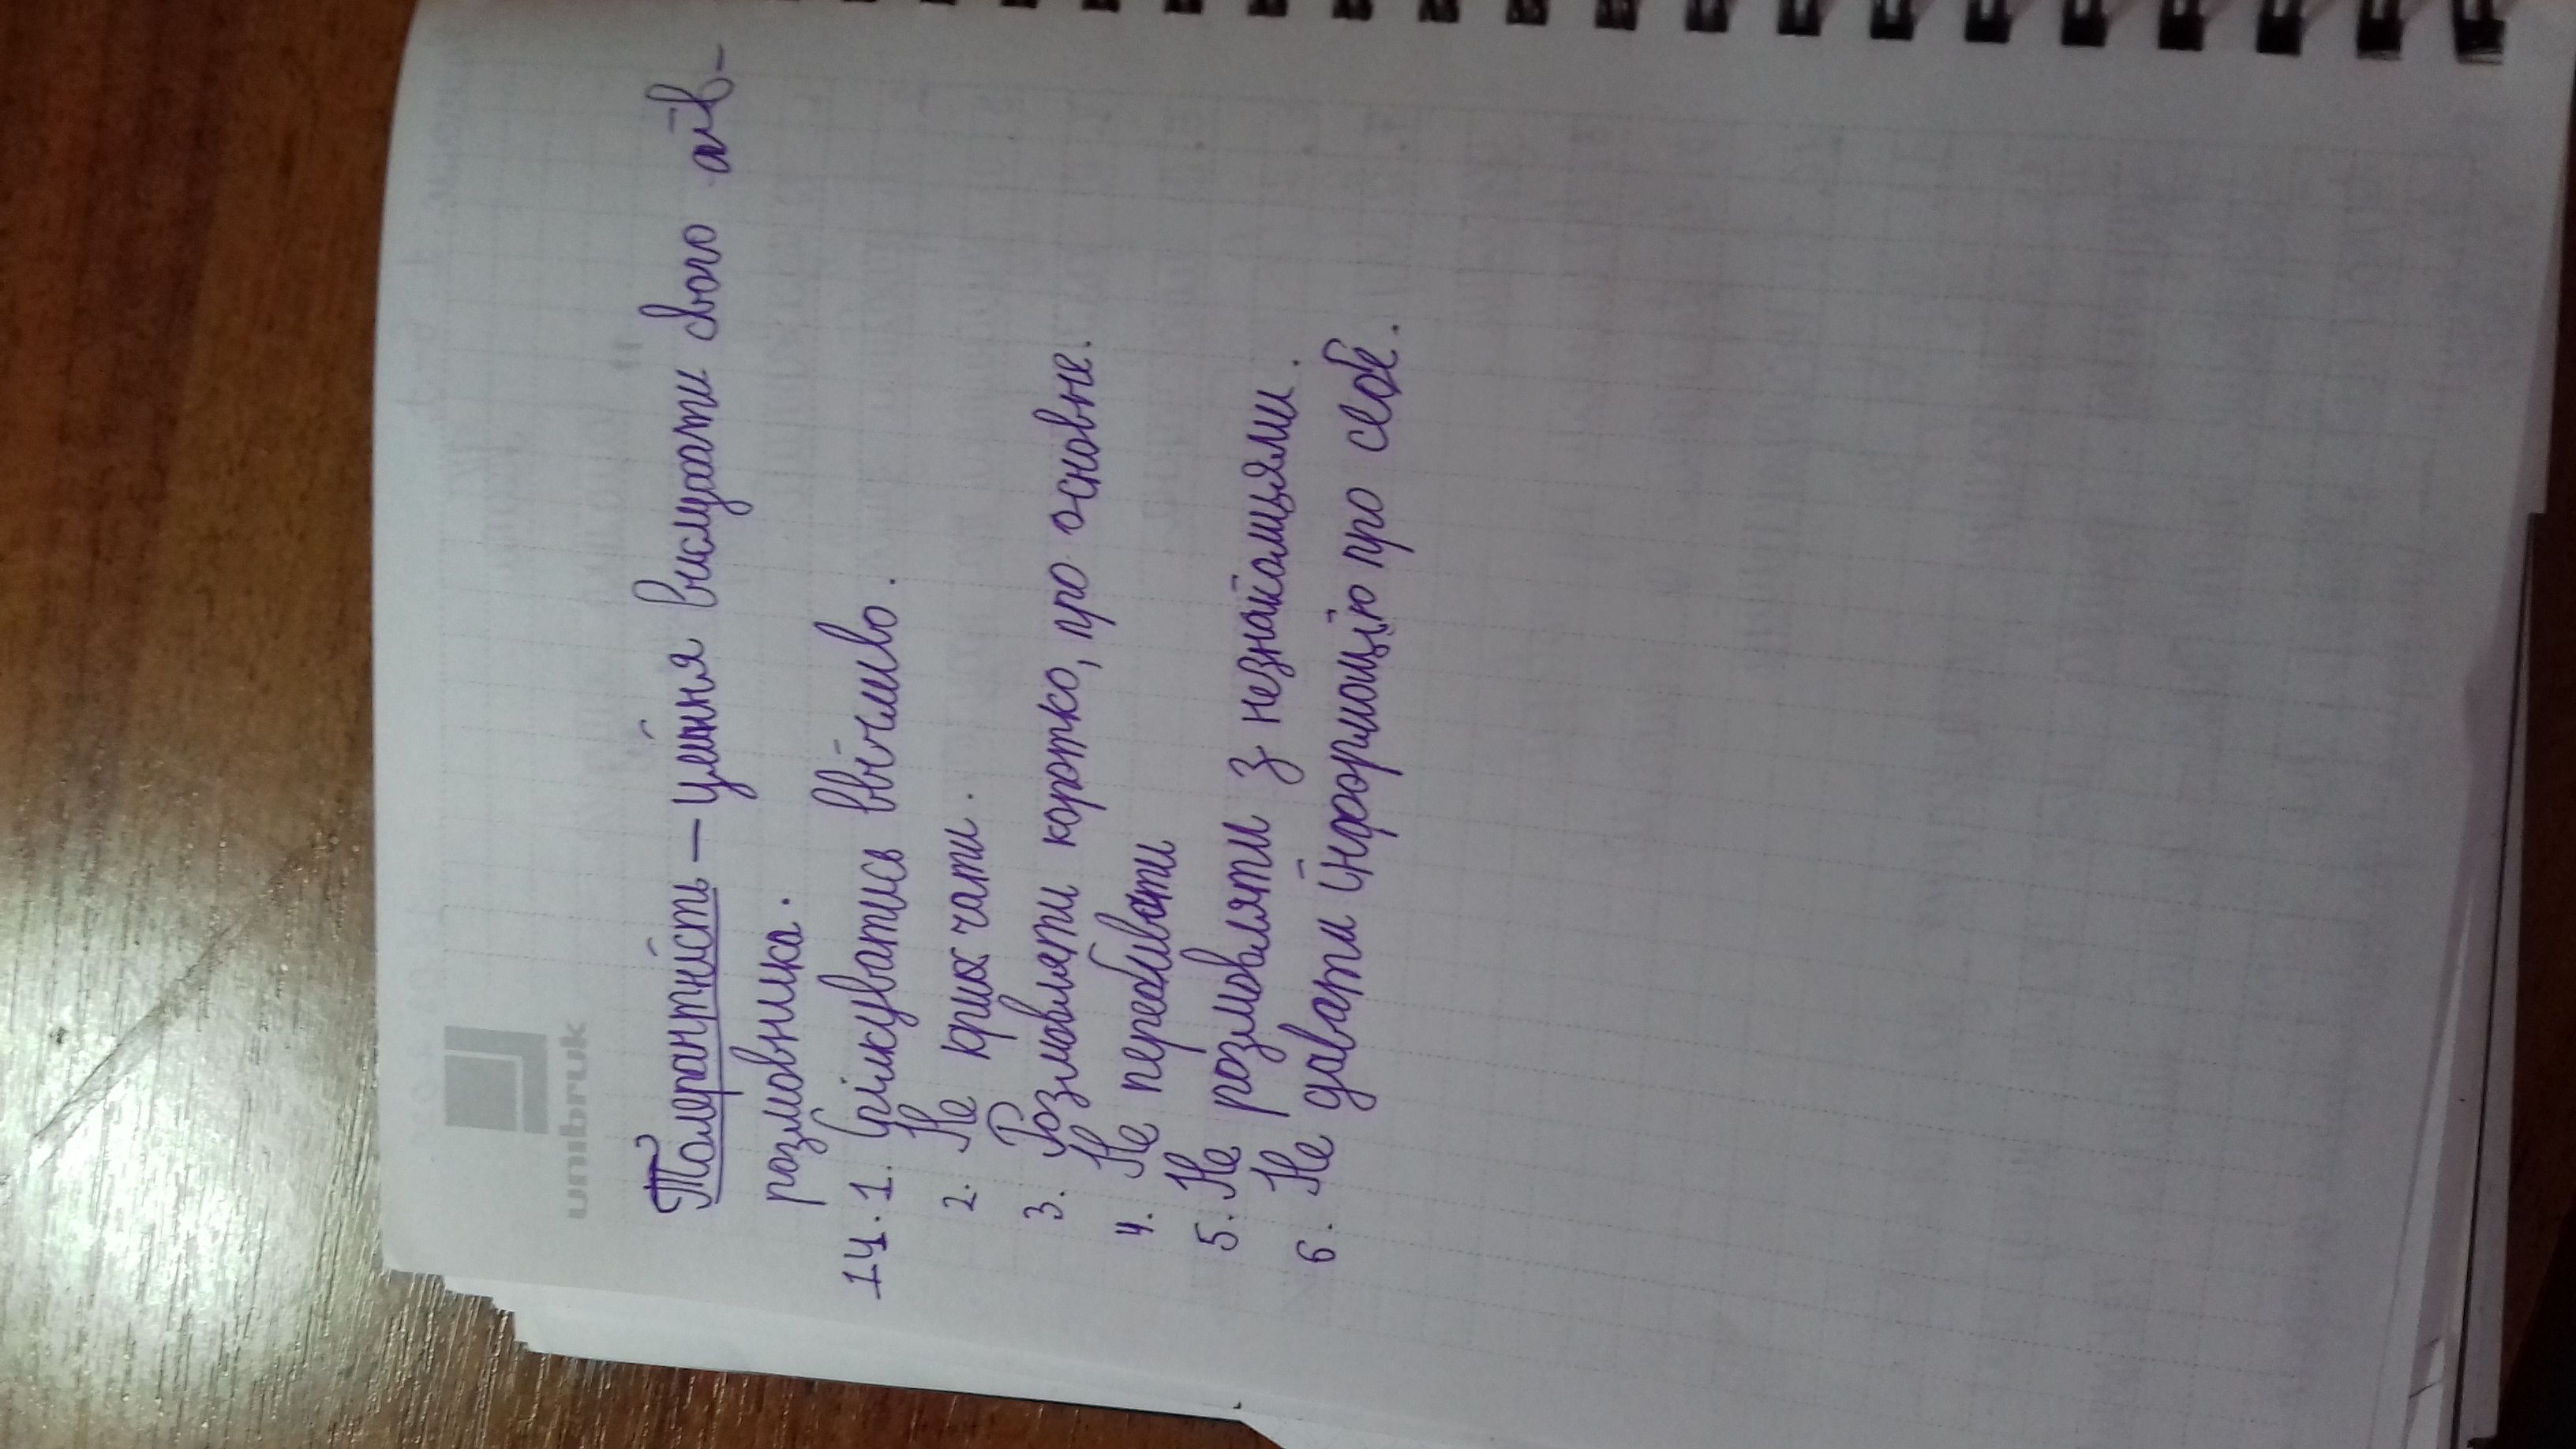 unibruk
Толерантність – уміння вислухати свого спів-
розмовника.
14. 1. Спілкуватись ввічливо.
2. Не кричати.
3. Розмовляти коротко, про основне.
4. Не перебивати
5. Не розмовляти з незнайомцями.
6. Не давати інформацію про себе.